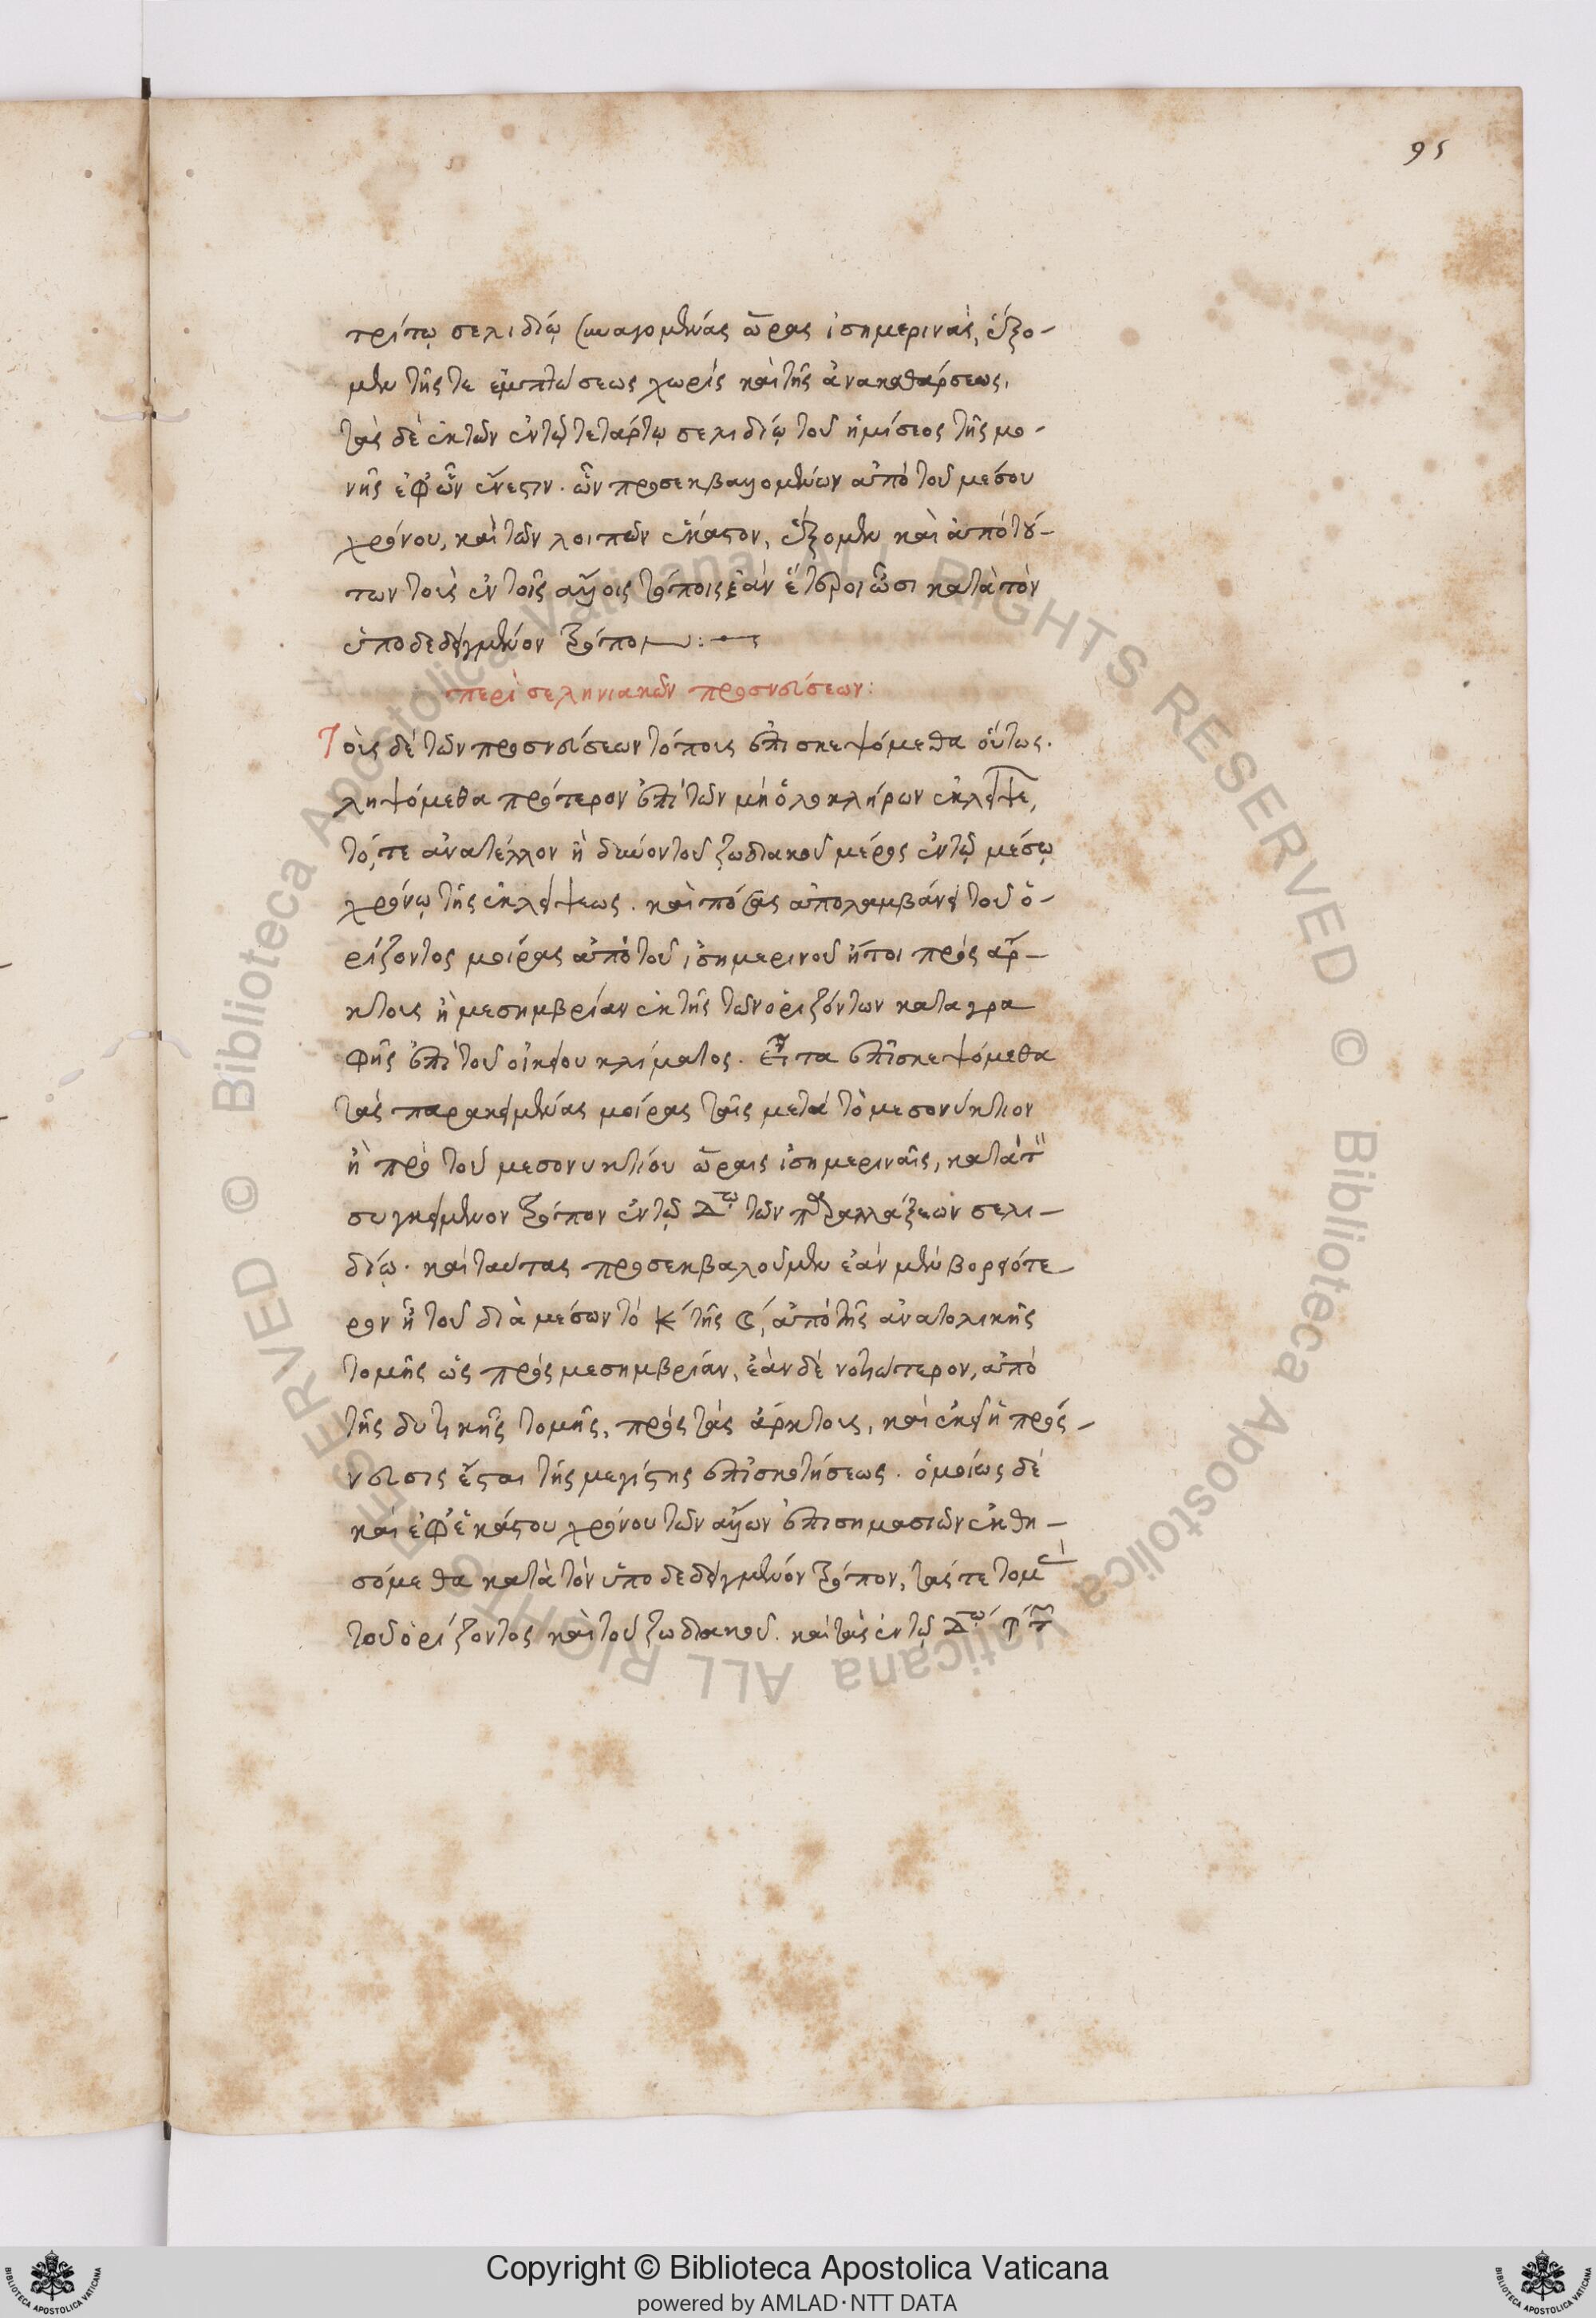 95
τρίτῳ σελιδίῳ συναγομένας ὥρας ἰσημερινὰς, ἕξο-
μεν τῆς τε ἐμπτώσεως χωρὶς καὶ τῆς ἀνακαθάρσεως,
τὰς δὲ ἐκ τῶν ἐν τῷ τετάρτῳ σελιδίῳ τοῦ ἡμίσεος τῆς μο-
νῆς ἐφ' ὧν ἔνεστιν. ὧν προσεκβαλλομένων ἀπὸ τοῦ μέσου
χρόνου, καὶ τῶν λοιπῶν ἕκαστον, ἕξομεν καὶ ἀπὸ τού-
των τοὺς ἐν τοῖς ἄλλοις τόποις ἐὰν ἕτεροι ὦσι κατὰ τὸν
ὑποδεδειγμένον τρόπον:
περὶ σεληνιακῶν προσνεύσεων:
Τοὺς δὲ τῶν προσνεύσεων τόπους ἐπισκεψόμεθα οὕτως.
ληψόμεθα πρότερον ἐπὶ τῶν μὴ ὁλοκλήρων ἐκλείψε,
τό, τε ἀνατέλλον ἢ δυνον τοῦ ζωδιακοῦ μέρος ἐν τῷ μέσῳ
χρόνῳ τῆς ἐκλείψεως. καὶ πόσας ἀπολαμβάνει τοῦ ὁ-
ρίζοντος μοίρας ἀπὸ τοῦ ἰσημερινοῦ ἤτοι πρὸς ἄρ-
κτους ἢ μεσημβρίαν ἐκ τῆς τῶν ὁριζόντων καταγρα
φῆς ἐπὶ τοῦ οἰκείου κλίματος. εἶτα ἐπισκεψόμεθα
τὰς παρακειμένας μοίρας ταῖς μετὰ τὸ μεσονύκτιον
ἢ πρὸ τοῦ μεσονυκτίου ὥραις ἰσημεριναῖς, κατὰ τὸν
συγκείμενον τρόπον ἐν τῷ Δῳ τῶν παραλλάξεων σελι-
δίῳ. καὶ ταύτας προσεκβαλοῦμεν ἐὰν μὲν βορειότε-
ρον ᾖ τοῦ διὰ μέσων τὸ Κ τῆς ☾, ἀπὸ τῆς ἀνατολικῆς
τομῆς ὡς πρὸς μεσημβρίαν, ἐὰν δὲ νοτιώτερον, ἀπὸ
τῆς δυτικῆς τομῆς, πρὸς τὰς ἄρκτους, καὶ ἐκεῖ ἡ πρόσ-
νευσις ἔσται τῆς μεγίστης ἐπισκοτήσεως. ὁμοίως δὲ
καὶ ἐφ' ἑκάστου χρόνου τῶν ἄλλων ἐπισημασιῶν ἐκθη-
σόμεθα κατὰ τὸν ὑποδεδειγμένον τρόπον, τάς τε τομ
τοῦ ὁρίζοντος καὶ τοῦ ζωδιακοῦ. καὶ τὰς ἐν τῷ Δῳ
Copyright © Biblioteca Apostolica Vaticana
powered by AMLAD·NTT DATA